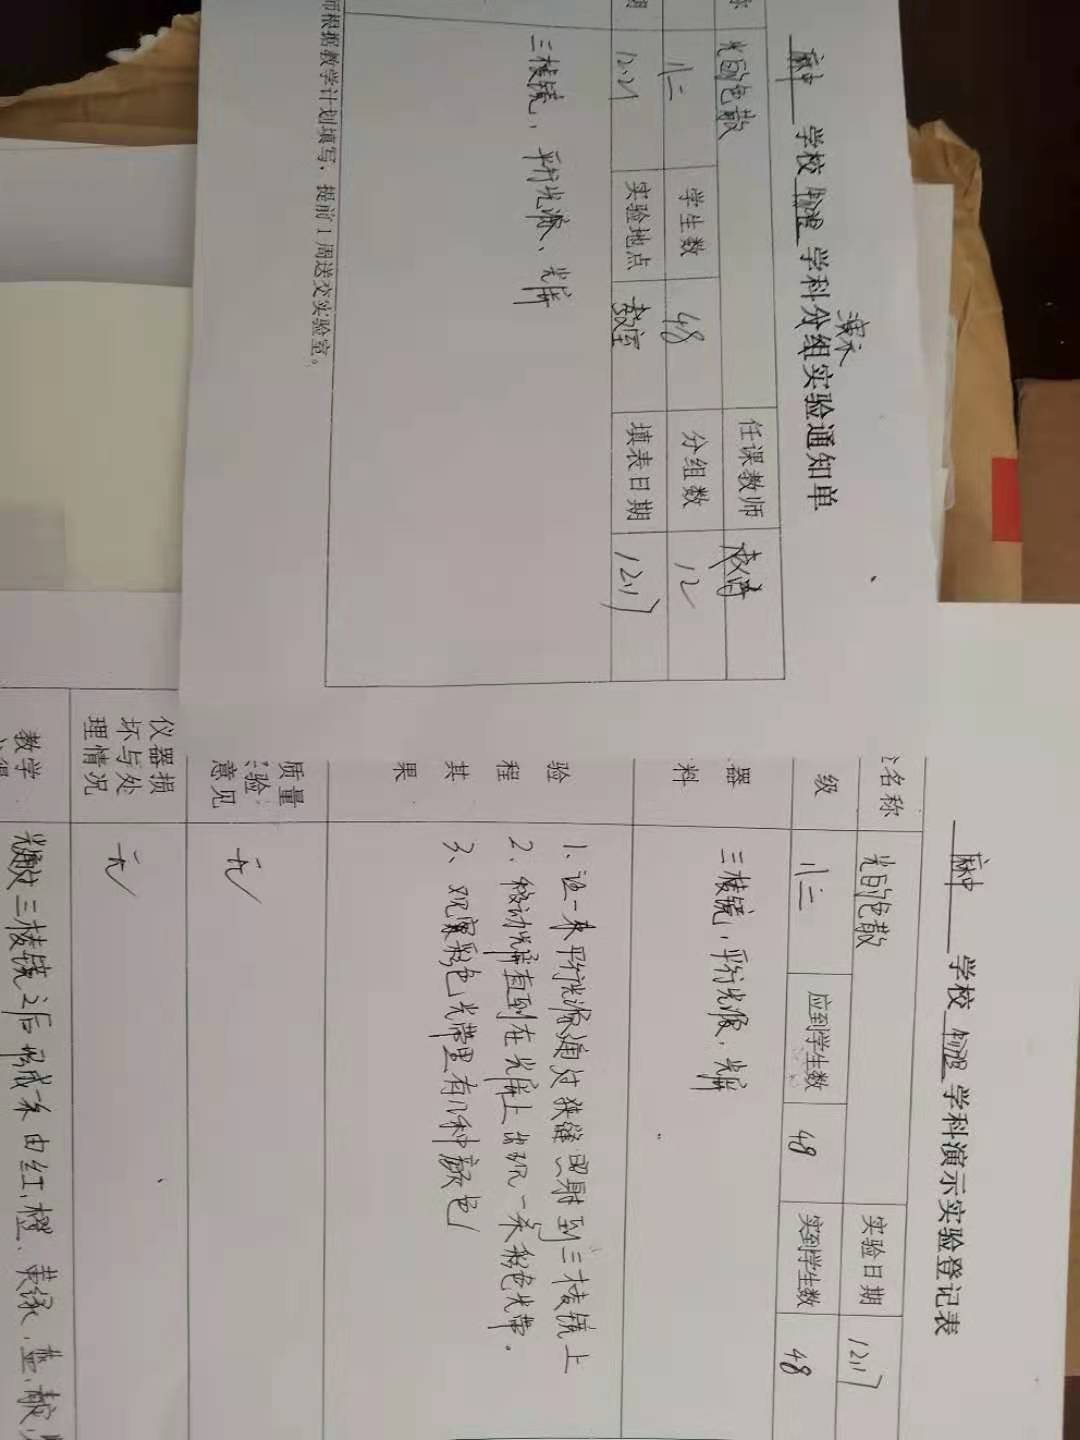 麻中 学校 物理 学科分组实验通知单
演示
称 光的色散 任课教师
八二 学生数 48 分组数 12
期 12.21 实验地点 教室 填表日期 12.17
三棱镜，平行光源、光屏
师根据教学计划填写，提前1周送交实验室。
麻中 学校 物理 学科演示实验登记表
名称 光的色散 实验日期 12.17
级 八二 应到学生数 48 实到学生数 48
器
料
三棱镜，平行光源、光屏
验
程
其
果
1、让一束平行光源通过狭缝照射到三棱镜上
2、移动光屏直到在光屏上出现一条彩色光带.
3、观察彩色光带里有几种颜色
质量
验
意见
无
仪器损
坏与处
理情况
无
教学
过三棱镜之后形成一条由红、橙、黄绿、蓝、靛、